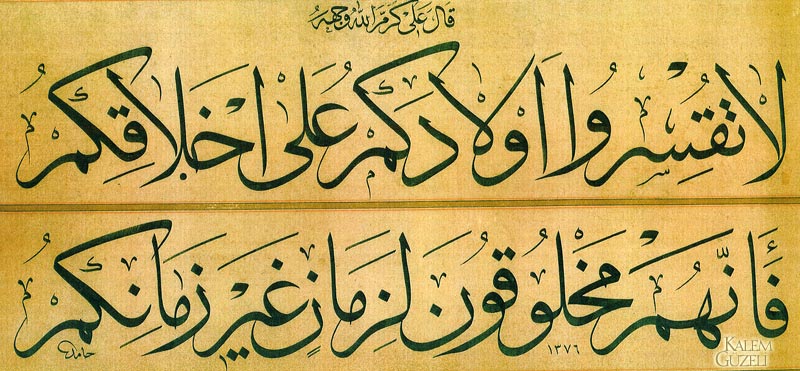 قال علي كرم الله وجهه
لا تقسروا اولادكم على اخلاقكم
فَانّهم مخلوقون لزمانٍ غير زمانكم
١٣٧٦
حامد
KALEM GÜZELİ